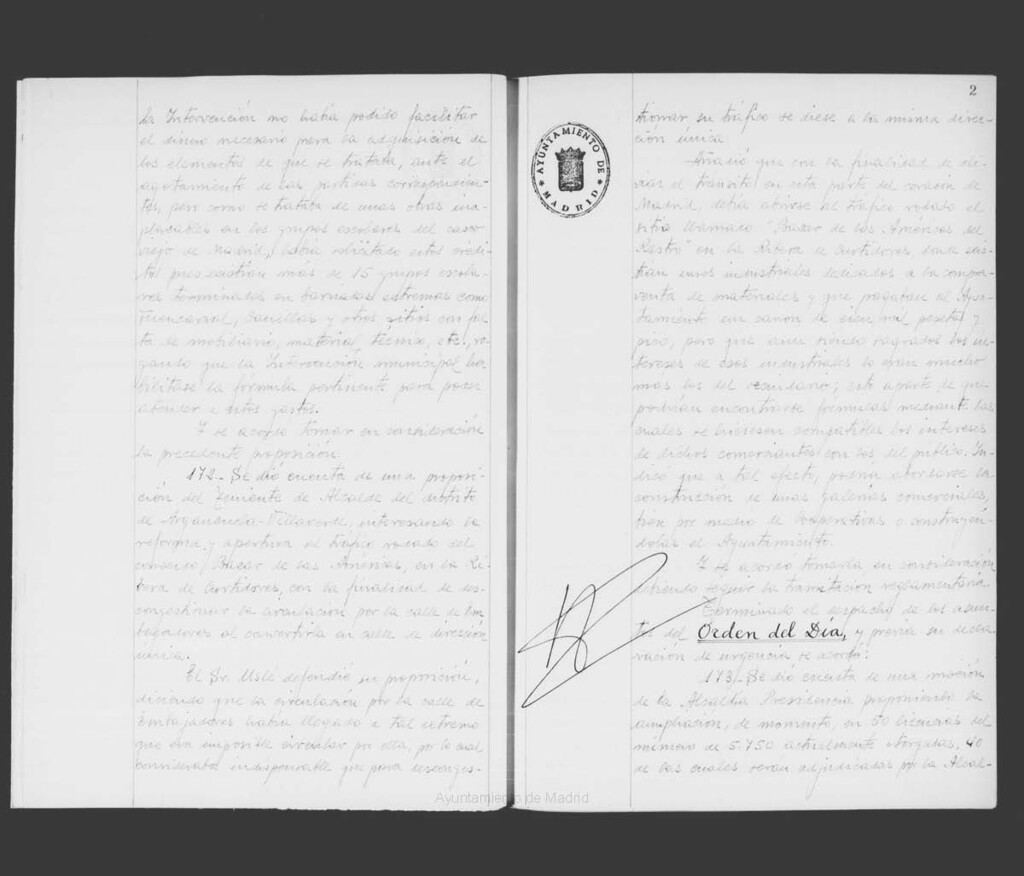 la Intervención no había podido facilitar
el dinero necesario para la adquisición de
los elementos de que se trataba, ante el
agotamiento de las partidas correspondien-
tes, pero como se trataba de unas obras ina-
plazables en los grupos escolares del casco
viejo de Madrid, había solicitado estos crédi-
tos, pues existían más de 15 grupos escola-
res terminados en barriadas extremas como
Fuencarral, Canillas y otros sitios con fal-
ta de mobiliario, material técnico, etc., ro-
gando que la Intervención municipal ha-
bilitase la fórmula pertinente para poder
atender a estos gastos.
Y se acordó tomar en consideración
la precedente proposición.
172.- Se dió cuenta de una proposi-
ción del Teniente de Alcalde del distrito
de Arganzuela-Villaverde, interesando la
reforma y apertura al tráfico rodado del
Bazar de las Américas, en la Ri-
bera de Curtidores, con la finalidad de des-
congestionar la circulación por la calle de Em-
bajadores al convertirla en calle de dirección
única.
El Sr. defendió su proposición,
diciendo que la circulación por la calle de
Embajadores había llegado a tal extremo
que era imposible circular por ella, por lo cual
consideraba indispensable que para desconges-
2
AYUNTAMIENTO DE MADRID
tionar su tráfico se diese a la misma direc-
ción única.
Añadió que con la finalidad de ali-
viar el tránsito en esta parte del corazón de
Madrid, debía abrirse al tráfico rodado el
sitio llamado "Bazar de las Américas del
Rastro" en la Ribera de Curtidores, donde exis-
tían unos industriales dedicados a la compra-
venta de materiales y que pagaban al Ayun-
tamiento un canon de cien mil pesetas y
pico, pero que aun siendo sagrados los in-
tereses de esos industriales lo eran mucho
más los del vecindario; esto aparte de que
podrían encontrarse fórmulas mediante las
cuales se hiciesen compatibles los intereses
de dichos comerciantes con los del público. In-
dicó que a tal efecto, podría abordarse la
construcción de unas galerías comerciales,
bien por medio de Cooperativas o construyén-
dolas el Ayuntamiento.
Y se acordó tomarla en consideración
debiendo seguir la tramitación reglamentaria.
Terminado el despacho de los asun-
tos del Orden del Día, y previa su decla-
ración de urgencia se acordó:
173.- Se dió cuenta de una moción
de la Alcaldía Presidencia proponiendo la
ampliación, de momento, en 50 licencias del
número de 5.750 actualmente otorgadas, 40
de las cuales serán adjudicadas por la Alcal-
Ayuntamiento de Madrid